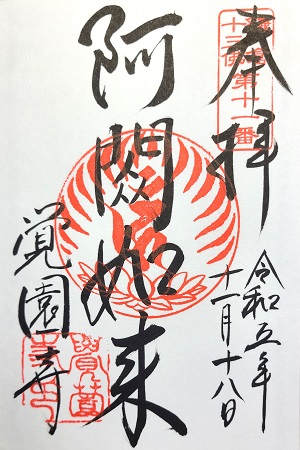 鎌倉
十三佛第十一番
奉拝
令和五年
十一月十八日
阿閦如来
覚園寺